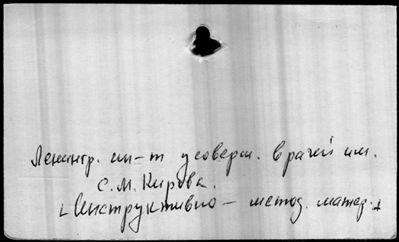 Ленингр. ин-т усоверш. врачей им.
С. М. Кирова.
[Инструктивно-метод. матер.]